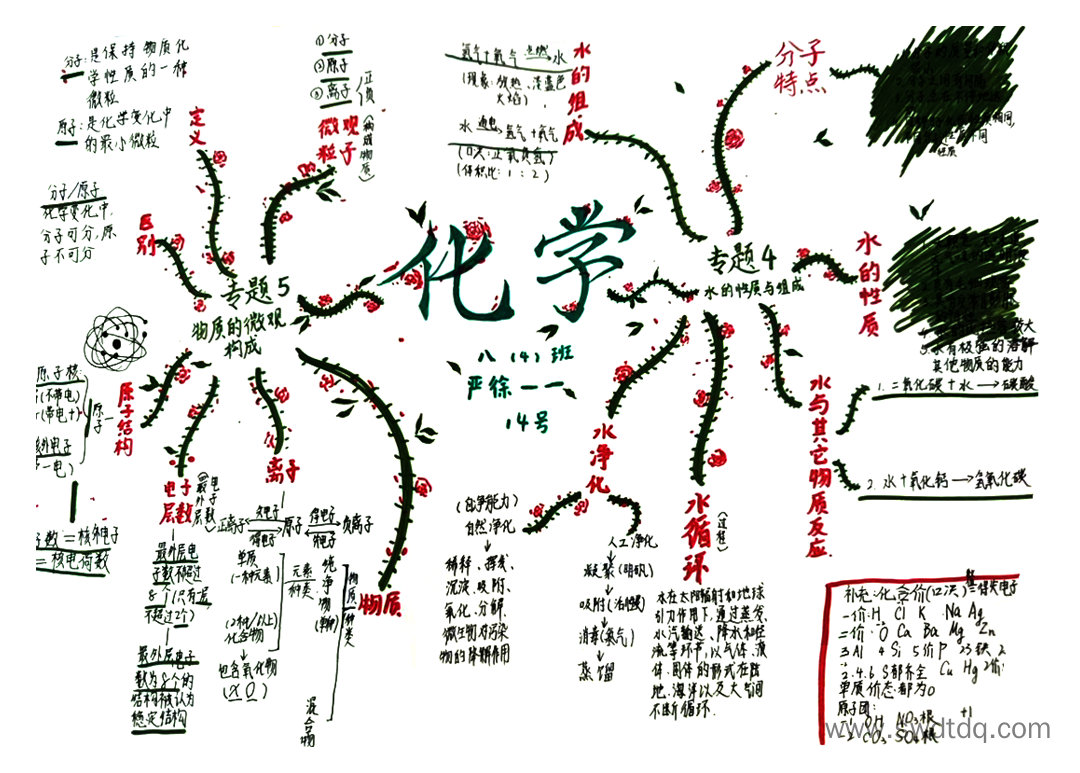 化学
八（4）班
严徐一一
14号
专题5
物质的微观
构成
定义
分子：是保持物质化
学性质的一种
微粒
原子：是化学变化中
的最小微粒
区别
分子/原子
化学变化中，
分子可分，原
子不可分
微观
粒子
（构成物质）
①分子
②原子
③离子
正
负
原子结构
原子
原子核
(不带电)
(带电+)
核外电子
一电)
数＝核外电子
＝核电荷数
电子
层数
最外层电
子数不超过
8个(只有一层
不超过2个)
最外层电子
数为8个的
结构被认为
稳定结构
离子
正离子
失电子
得电子
原子
得电子
失电子
负离子
物质
物质种类
纯净物
混合物
元素
种类
单质
(一种元素)
(2种/以上)
化合物
包含氧化物
专题4
水的性质与组成
水的组成
氢气＋氧气 点燃 水
(现象：放热、淡蓝色
火焰)
水 通电 氢气＋氧气
(体积比：1：2)
分子
特点
水的性质
其他物质的能力
水与其它物质反应
1. 二氧化碳＋水→碳酸
2. 水＋氧化钙→氢氧化碳
水净化
(自净能力)
自然净化
稀释、挥发、
沉淀、吸附、
氧化、分解、
微生物对污染
物的降解作用
人工净化
凝聚(明矾)
吸附(活性炭)
消毒(氯气)
蒸馏
水循环
(过程)
水在太阳辐射和地球
引力作用下，通过蒸发、
水汽输送、降水和径
流等环节，以气体、液
体、固体的形式在陆
地、海洋以及大气间
不断循环.
补充：化合价(口决)＝得失电子
一价：H Cl K Na Ag
二价：O Ca Ba Mg Zn
3Al 4Si 5价P 23铁 2
2.4.6 S都齐全 Cu Hg 2价
单质价态都为0
原子团：
-1 OH NO₃根 +1
-2 CO₃ SO₄根
www.swdtdq.com